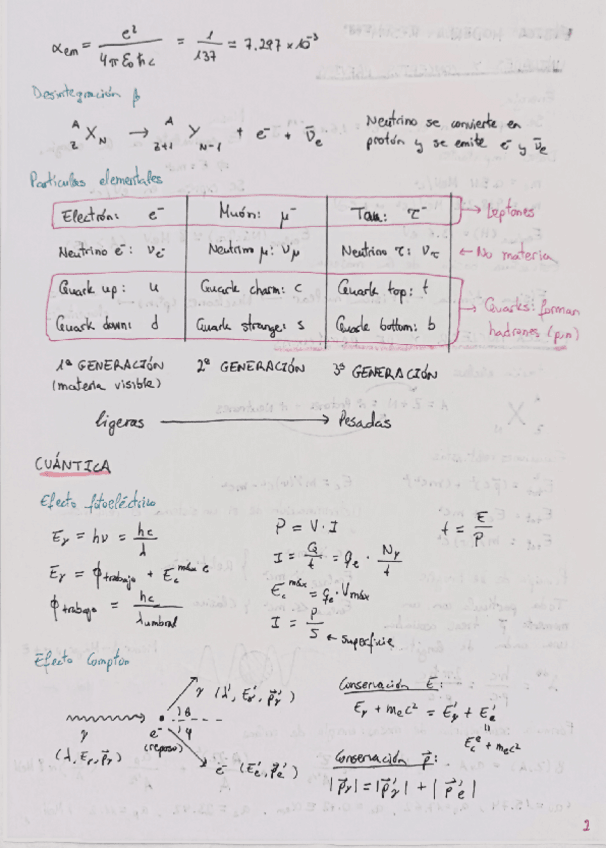 α_em = e² / 4πε₀ħc = 1/137 = 7.297 × 10⁻³
Desintegración β
ᴬ_Z X_N → ᴬ_Z+1 Y_N-1 + e⁻ + ν̄_e
Neutrino se convierte en
protón y se emite e⁻ y ν̄_e
Partículas elementales
Electrón: e⁻ Muón: μ⁻ Tau: τ⁻ → Leptones
Neutrino e⁻: ν_e⁻ Neutrino μ: ν_μ Neutrino τ: ν_τ ← No materia
Quark up: u Quark charm: c Quark top: t
→ Quarks: forman
Quark down: d Quark strange: s Quark bottom: b
hadrones (p,n)
1ª GENERACIÓN 2ª GENERACIÓN 3ª GENERACIÓN
(materia visible)
ligeras → Pesadas
CUÁNTICA
Efecto fotoeléctrico
E_γ = hν = hc/λ
E_γ = ϕ_trabajo + E_c^máx e
ϕ_trabajo = hc/λ_umbral
P = V · I
I = Q/t = q_e · N_γ/t
E_c^máx = q_e · V_máx
I = P/S ← superficie
t = E/P
Efecto Compton
γ (λ', E_γ', p⃗_γ')
θ
φ
e⁻
(reposo)
γ
(λ, E_γ, p⃗_γ)
e⁻ (E_e', p⃗_e')
Conservación E:
E_γ + m_ec² = E_γ' + E_e'
=
E_c^e + m_ec²
Conservación p⃗:
|p⃗_γ| = |p⃗_γ'| + |p⃗_e'|
1